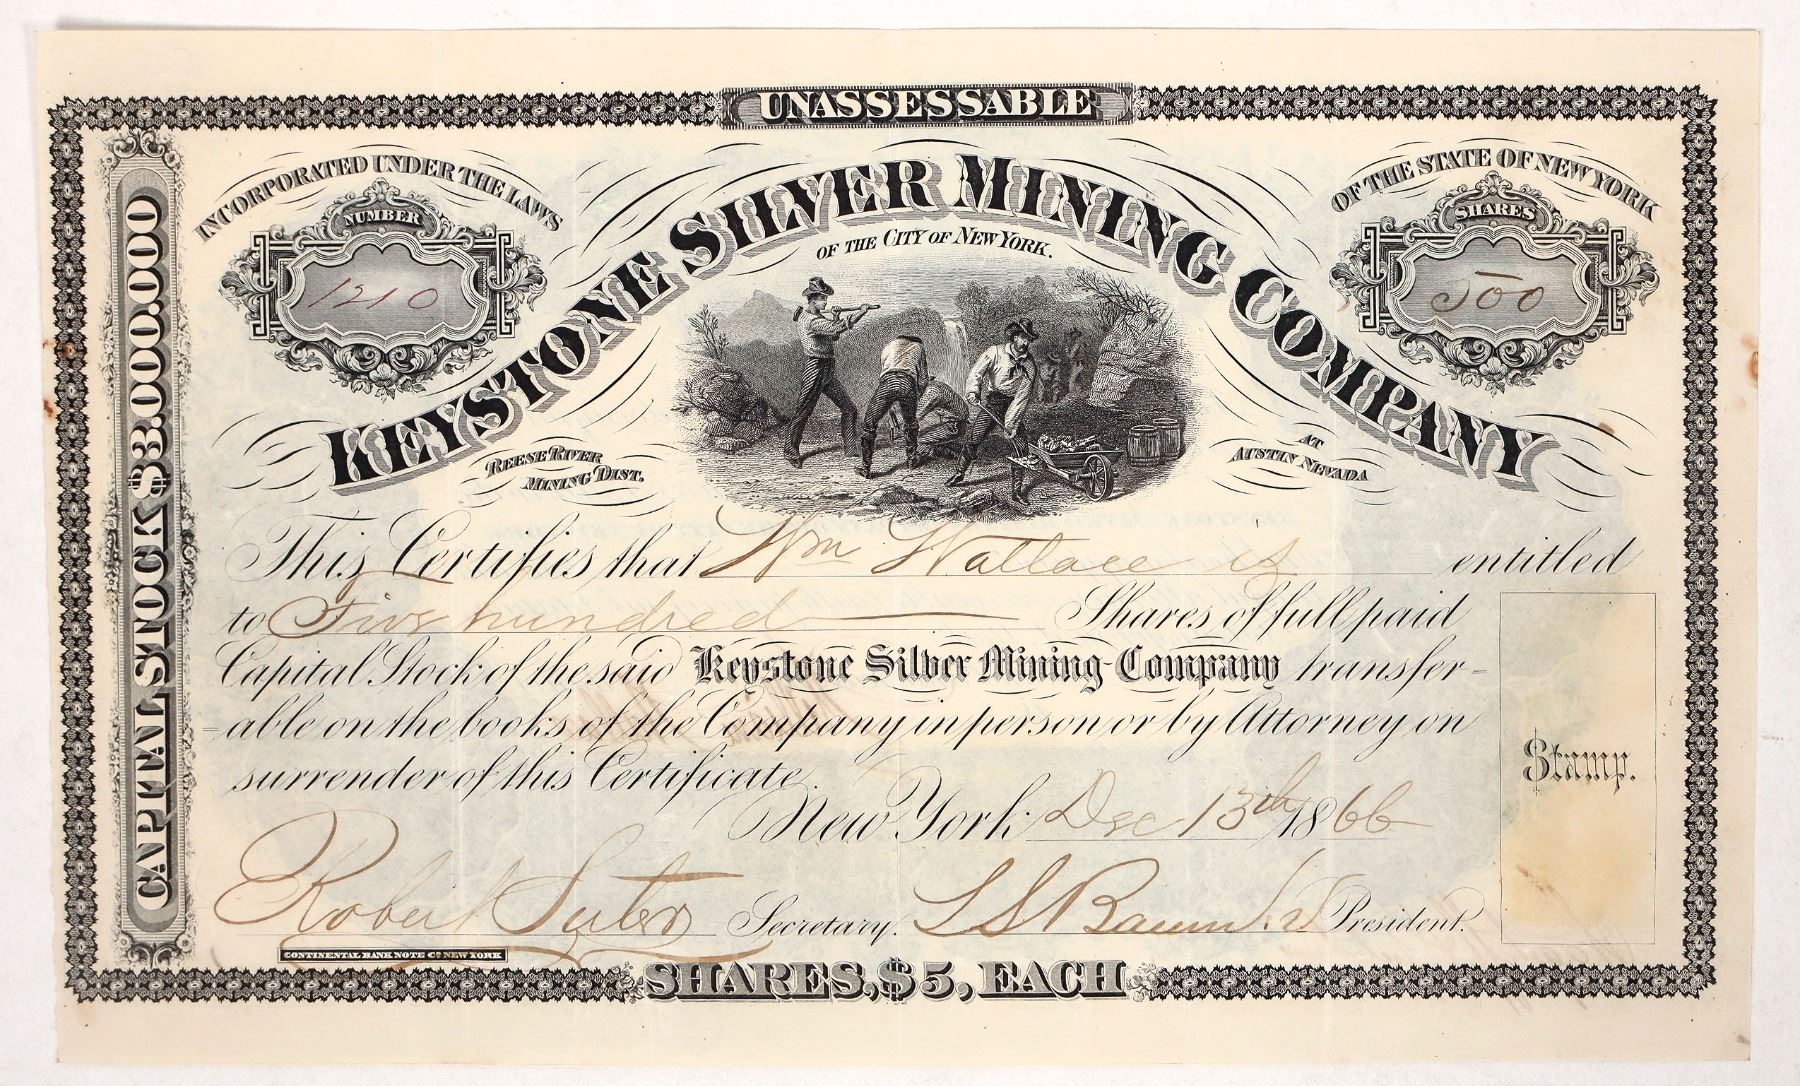 UNASSESSABLE
INCORPORATED UNDER THE LAWS
OF THE STATE OF NEW YORK
NUMBER
1210
SHARES
500
KEYSTONE SILVER MINING COMPANY
OF THE CITY OF NEW YORK.
REESE RIVER
MINING DIST.
AT
AUSTIN NEVADA
CAPITAL STOCK $3.000.000
This Certifies that Wm Wallace is entitled
to Five hundred Shares of full paid
Capital Stock of the said Keystone Silver Mining Company transfer-
=able on the books of the Company in person or by Attorney on
surrender of this Certificate.
New York Dec 13th 1866
Stamp.
Robert Suter Secretary. L S President.
CONTINENTAL BANK NOTE Co. NEW YORK
SHARES, $5, EACH